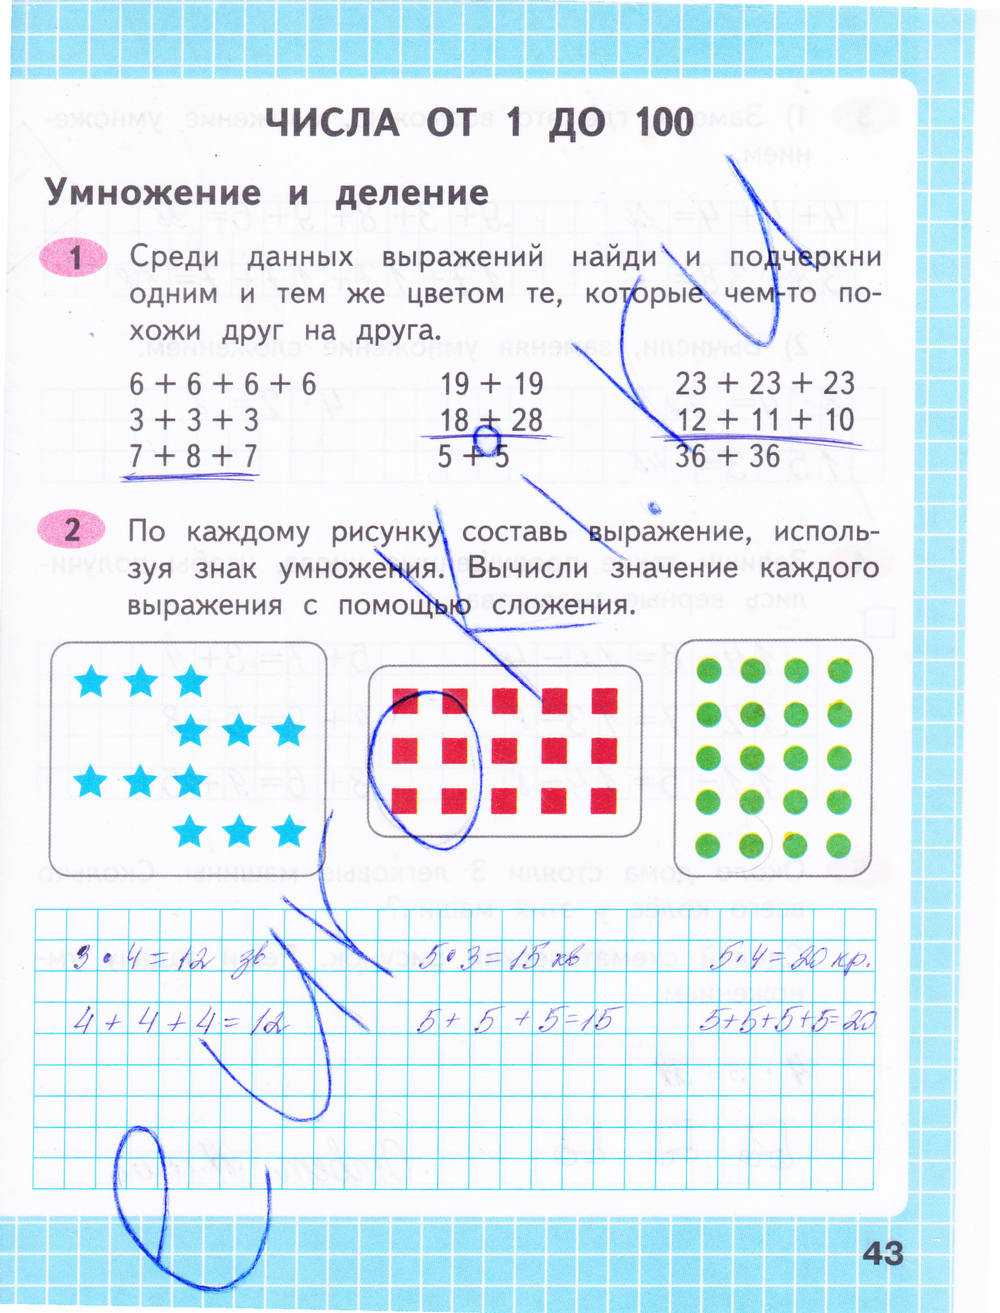 ЧИСЛА ОТ 1 ДО 100
Умножение и деление
1 Среди данных выражений найди и подчеркни
одним и тем же цветом те, которые чем-то по-
хожи друг на друга.
6 + 6 + 6 + 6 19 + 19 23 + 23 + 23
3 + 3 + 3 18 + 28 12 + 11 + 10
7 + 8 + 7 5 + 5 36 + 36
2 По каждому рисунку составь выражение, исполь-
зуя знак умножения. Вычисли значение каждого
выражения с помощью сложения.
3 · 4 = 12 зв 5 · 3 = 15 кв 5 · 4 = 20 кр.
4 + 4 + 4 = 12 5 + 5 + 5 = 15 5+5+5+5=20
43